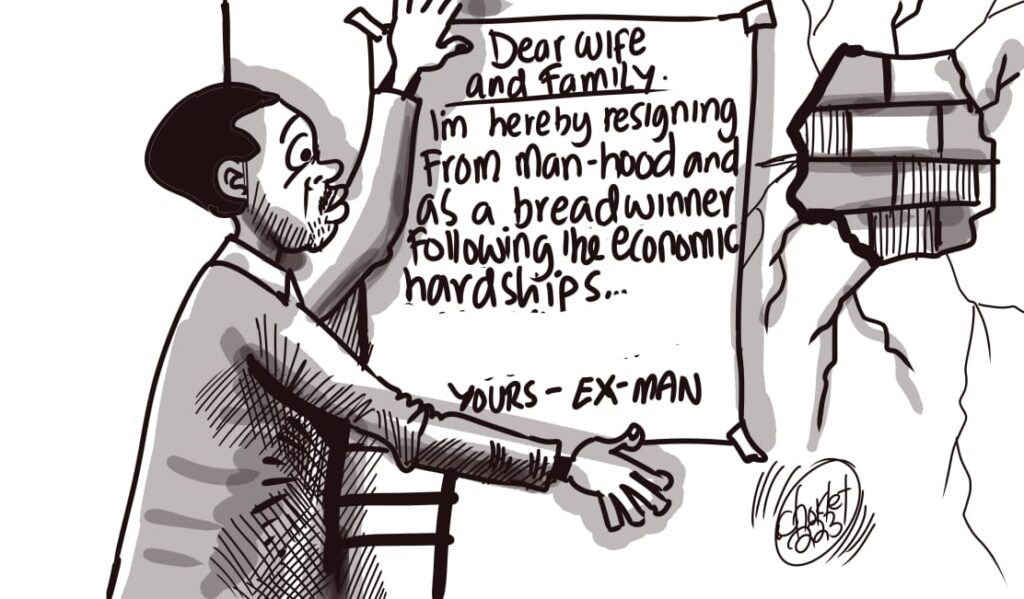 Dear wife
and Family.
I'm hereby resigning
From man-hood and
as a breadwinner
Following the economic
hardships...
YOURS - EX-MAN